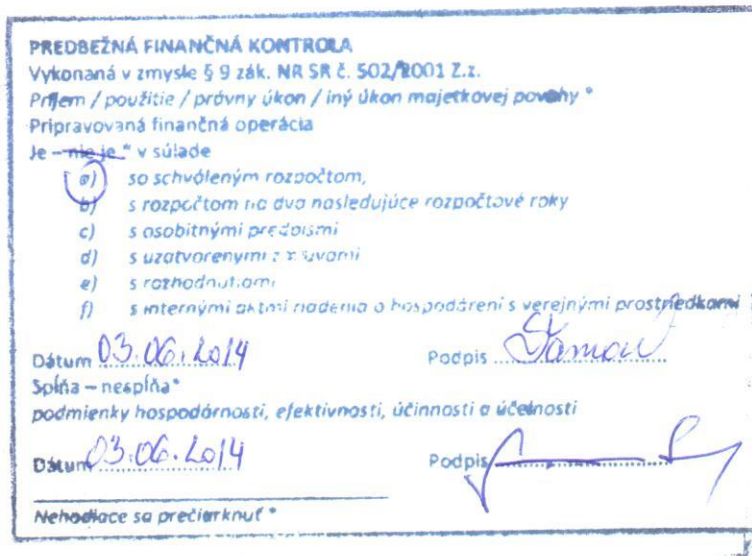 PREDBEŽNÁ FINANČNÁ KONTROLA
Vykonaná v zmysle § 9 zák. NR SR č. 502/2001 Z.z.
Príjem / použitie / právny úkon / iný úkon majetkovej povahy *
Pripravovaná finančná operácia
Je – nie je * v súlade
a) so schváleným rozpočtom,
b) s rozpočtom na dva nasledujúce rozpočtové roky
c) s osobitnými predpismi
d) s uzatvorenými zmluvami
e) s rozhodnutiami
f) s internými aktmi riadenia o hospodárení s verejnými prostriedkami
Dátum 03.06.2014 Podpis
Spĺňa – nespĺňa*
podmienky hospodárnosti, efektívnosti, účinnosti a účelnosti
Dátum 03.06.2014 Podpis
Nehodiace sa prečiarknuť *